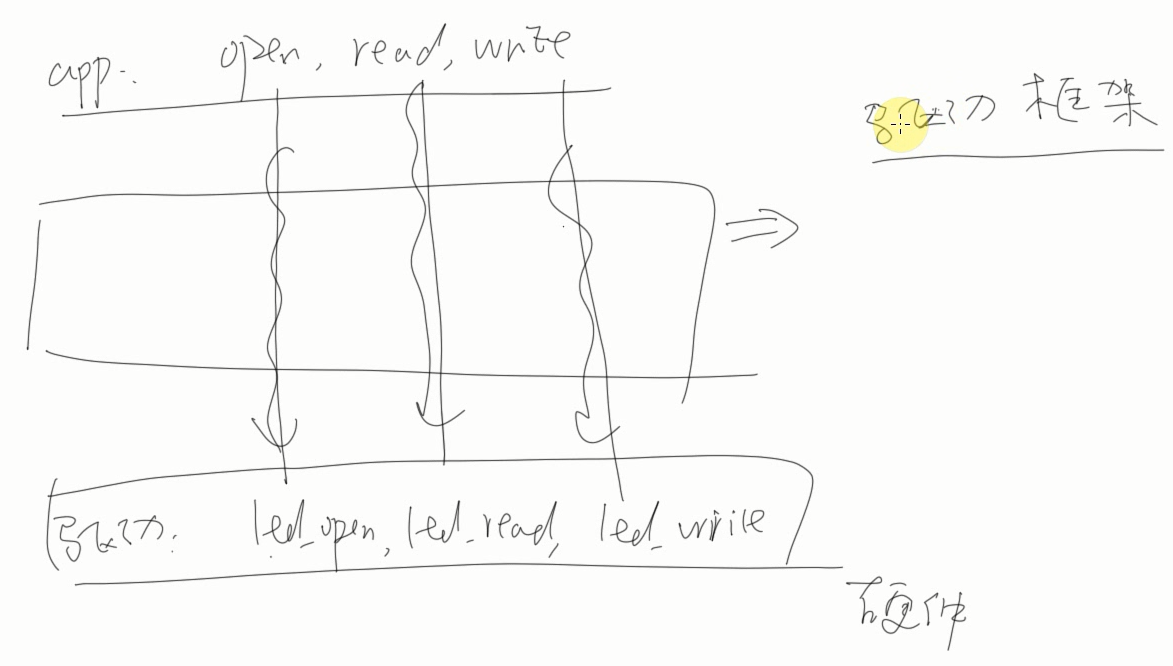 app: open, read, write
驱动框架
驱动: led_open, led_read, led_write
硬件